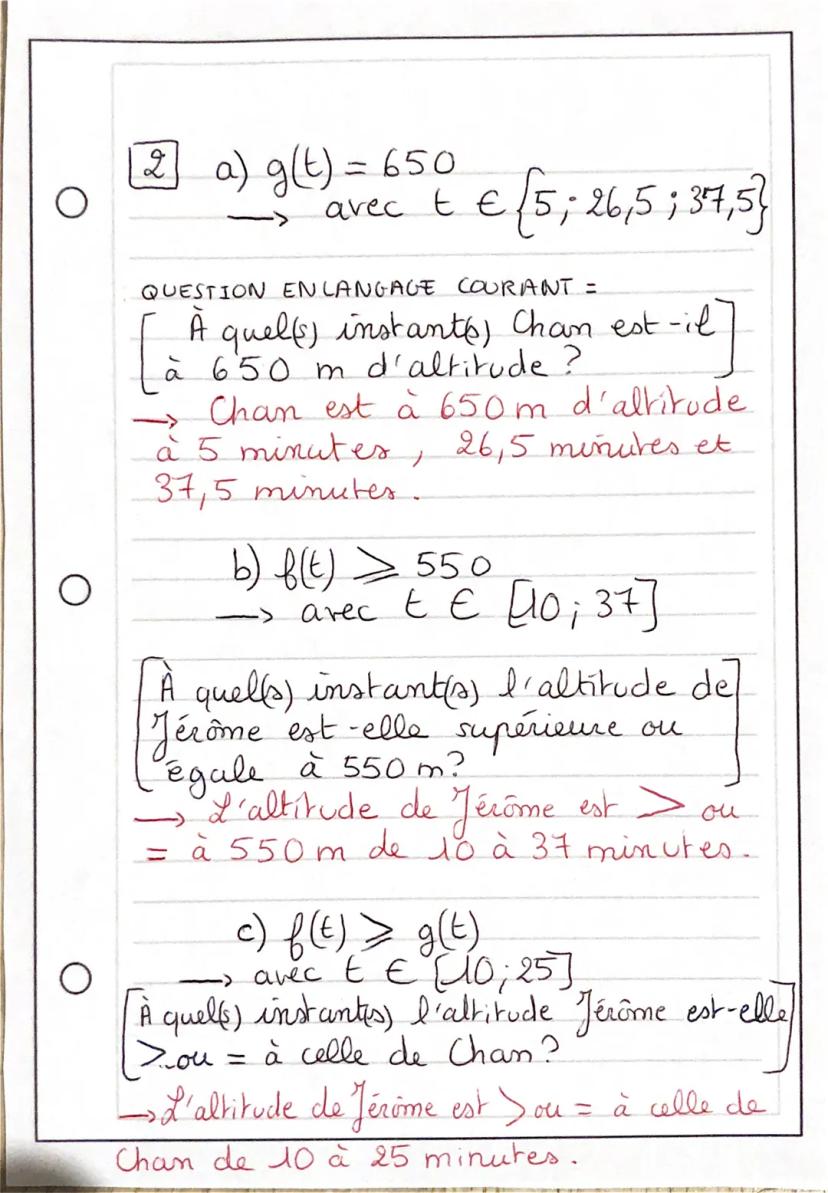 2 a) g(t) = 650
→ avec t ∈ {5 ; 26,5 ; 37,5}
QUESTION EN LANGAGE COURANT =
[ À quel(s) instant(s) Chan est-il
à 650 m d'altitude ? ]
→ Chan est à 650 m d'altitude
à 5 minutes, 26,5 minutes et
37,5 minutes.
b) f(t) ⩾ 550
→ avec t ∈ [10 ; 37]
[ À quel(s) instant(s) l'altitude de
Jérôme est-elle supérieure ou
égale à 550 m? ]
→ L'altitude de Jérôme est > ou
= à 550 m de 10 à 37 minutes.
c) f(t) ⩾ g(t)
→ avec t ∈ [10 ; 25]
[ À quel(s) instant(s) l'altitude Jérôme est-elle
> ou = à celle de Chan ? ]
→ L'altitude de Jérôme est > ou = à celle de
Chan de 10 à 25 minutes.